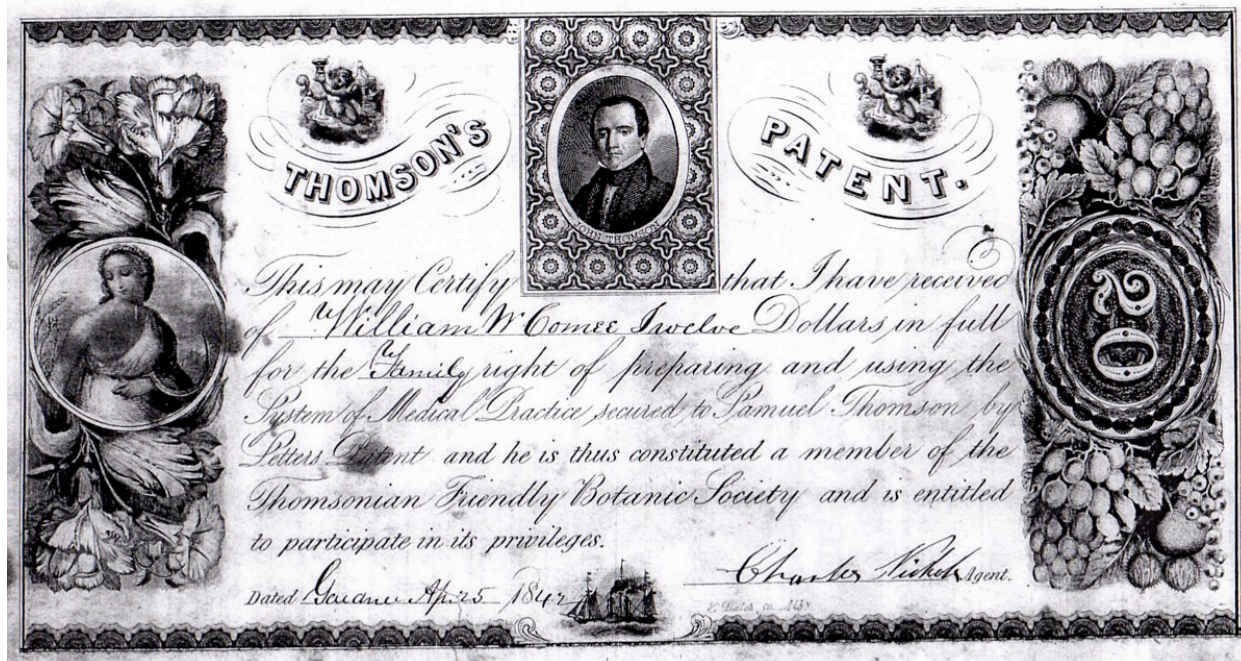 THOMSON'S PATENT.
JOHN THOMSON
This may Certify that I have received
of William W Comee Twelve Dollars in full
for the Family right of preparing and using the
System of Medical Practice secured to Samuel Thomson by
Letters Patent and he is thus constituted a member of the
Thomsonian Friendly Botanic Society and is entitled
to participate in its privileges.
Charles Agent.
Dated Gardner Apr 25 1842
20